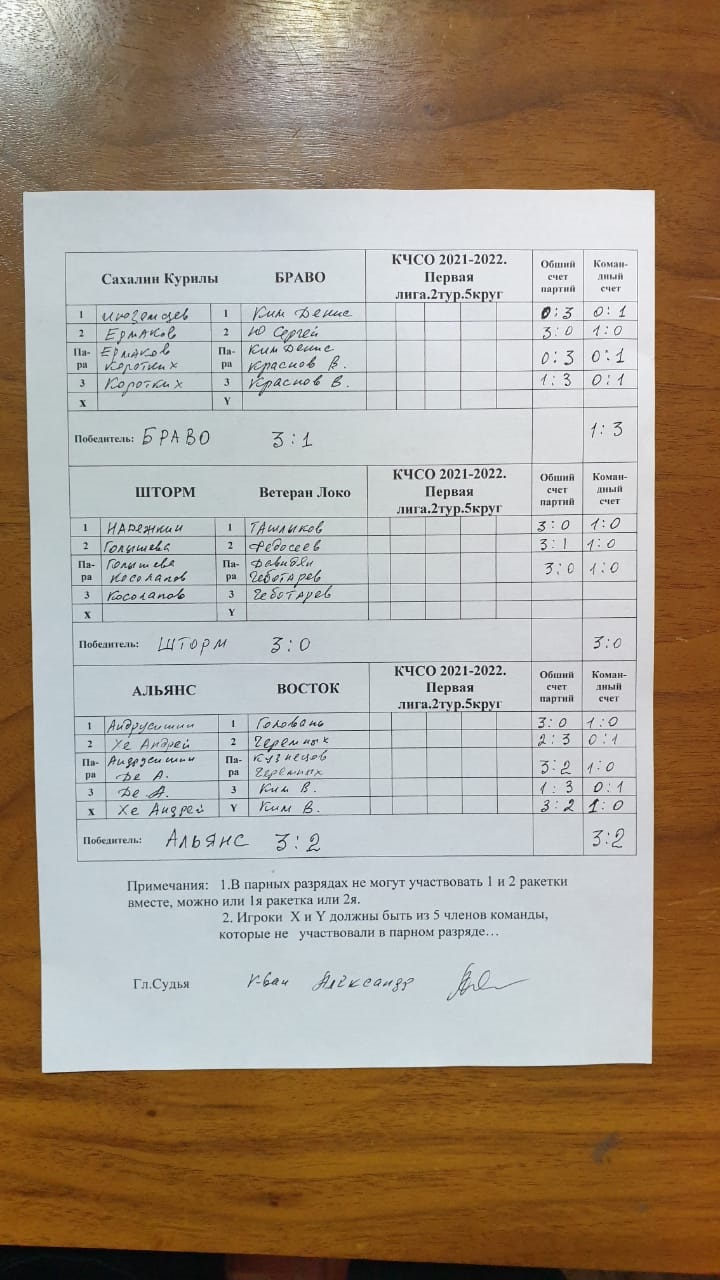 Сахалин Курилы БРАВО КЧСО 2021-2022. Первая лига.2тур.5круг Общий счет партий Коман-дный счет
1 Иноземцев 1 Ким Денис 0:3 0:1
2 Ермаков 2 Ю Сергей 3:0 1:0
Па-ра Ермаков Коротких Па-ра Ким Денис Краснов В. 0:3 0:1
3 Коротких 3 Краснов В. 1:3 0:1
X Y
Победитель: БРАВО 3:1 1:3
ШТОРМ Ветеран Локо КЧСО 2021-2022. Первая лига.2тур.5круг Общий счет партий Коман-дный счет
1 Надежкин 1 Ташлыков 3:0 1:0
2 Голышева 2 Федосеев 3:1 1:0
Па-ра Голышева Косолапов Па-ра Чеботарев 3:0 1:0
3 Косолапов 3 Чеботарев
X Y
Победитель: ШТОРМ 3:0 3:0
АЛЬЯНС ВОСТОК КЧСО 2021-2022. Первая лига.2тур.5круг Общий счет партий Коман-дный счет
1 Андрусишин 1 Головань 3:0 1:0
2 Хе Андрей 2 Черемных 2:3 0:1
Па-ра Андрусишин Де А. Па-ра Кузнецов Черемных 3:2 1:0
3 Де А. 3 Ким В. 1:3 0:1
X Хе Андрей Y Ким В. 3:2 1:0
Победитель: АЛЬЯНС 3:2 3:2
Примечания: 1.В парных разрядах не могут участвовать 1 и 2 ракетки
вместе, можно или 1я ракетка или 2я.
2. Игроки X и Y должны быть из 5 членов команды,
которые не участвовали в парном разряде…
Гл.Судья Александр